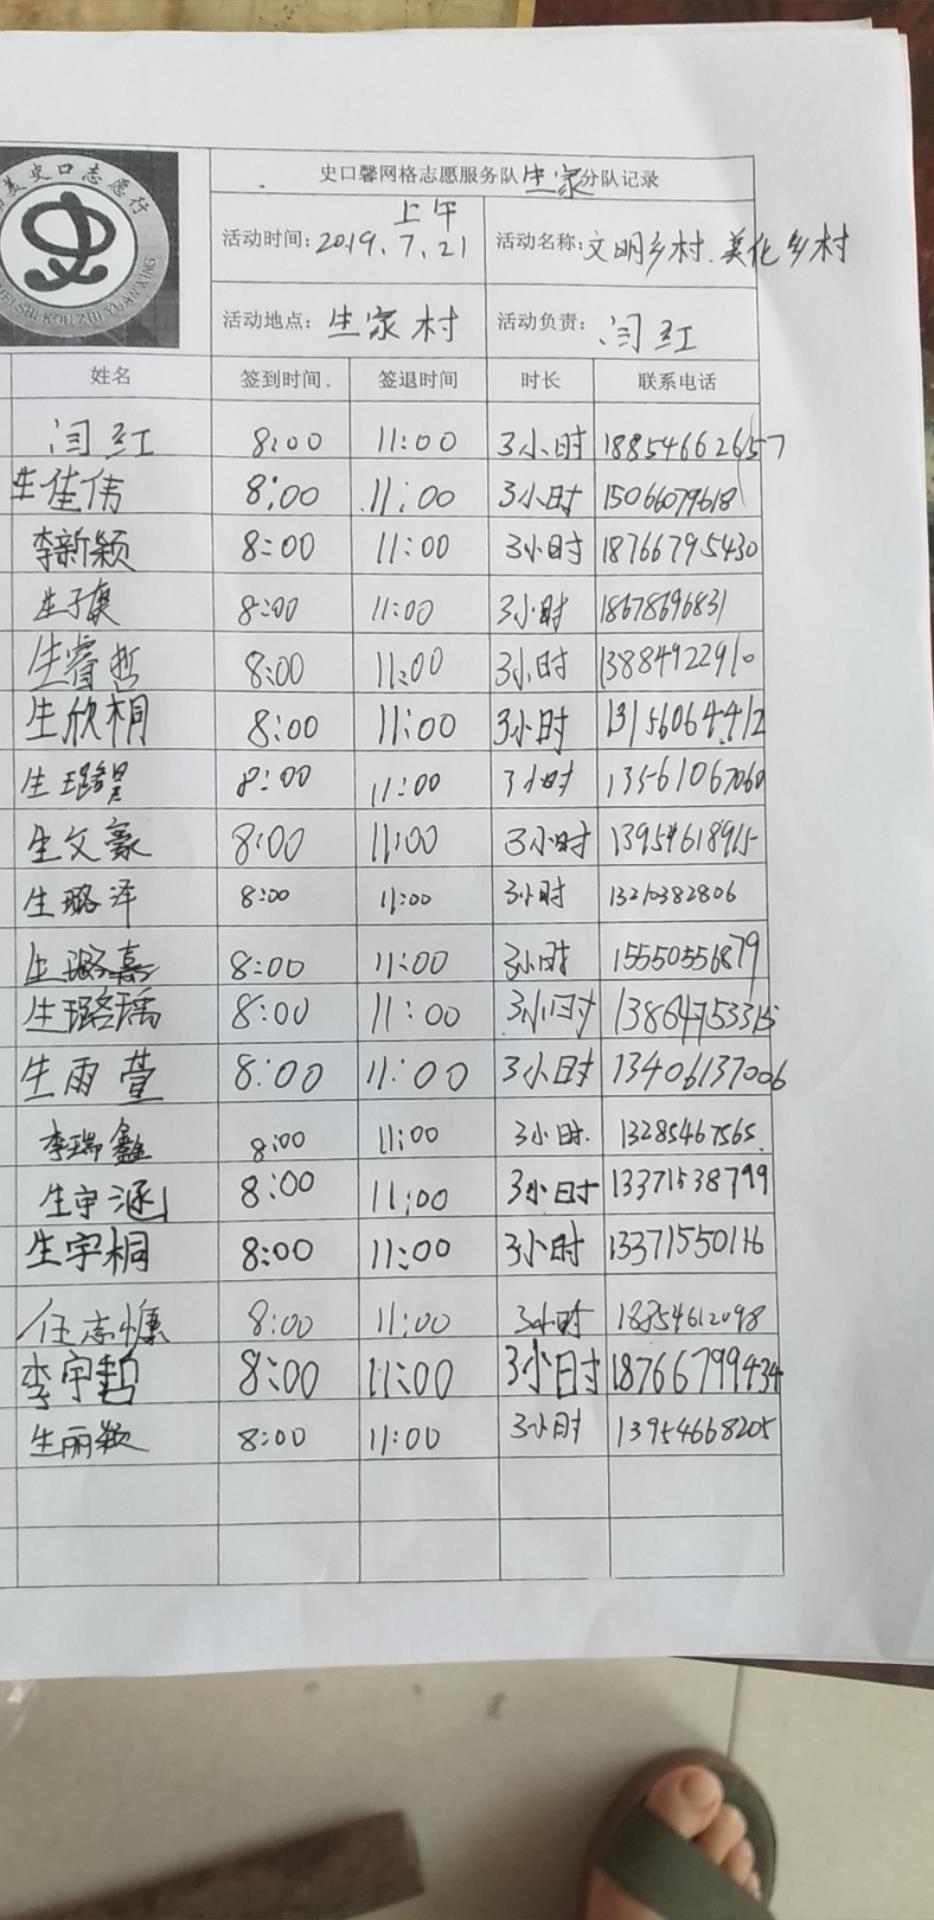 美史口志愿行
MEI SHI KOU ZHI YUAN XING
史口馨网格志愿服务队生家分队记录
活动时间：2019.7.21 上午 活动名称：文明乡村.美化乡村
活动地点：生家村 活动负责：闫红
姓名 签到时间. 签退时间 时长 联系电话
闫红 8:00 11:00 3小时 18854662657
生佳伟 8:00 11:00 3小时 15066079618
李新颖 8:00 11:00 3小时 18766795430
生子康 8:00 11:00 3小时 18678696831
生睿哲 8:00 11:00 3小时 13884922910
生欣桐 8:00 11:00 3小时 13156064412
生璐昊 8:00 11:00 3小时 13561067060
生文豪 8:00 11:00 3小时 13954618915
生璐泽 8:00 11:00 3小时 13210382806
生璐嘉 8:00 11:00 3小时 15550556879
生璐瑀 8:00 11:00 3小时
生雨萱 8:00 11:00 3小时 13406137006
李瑞鑫 8:00 11:00 3小时. 13285467565.
生宇涵 8:00 11:00 3小时 13371538799
生宇桐 8:00 11:00 3小时 13371550116
任志慷 8:00 11:00 3小时 18854612098
李宇哲 8:00 11:00 3小时 18766799434
生丽颖 8:00 11:00 3小时 13954668205